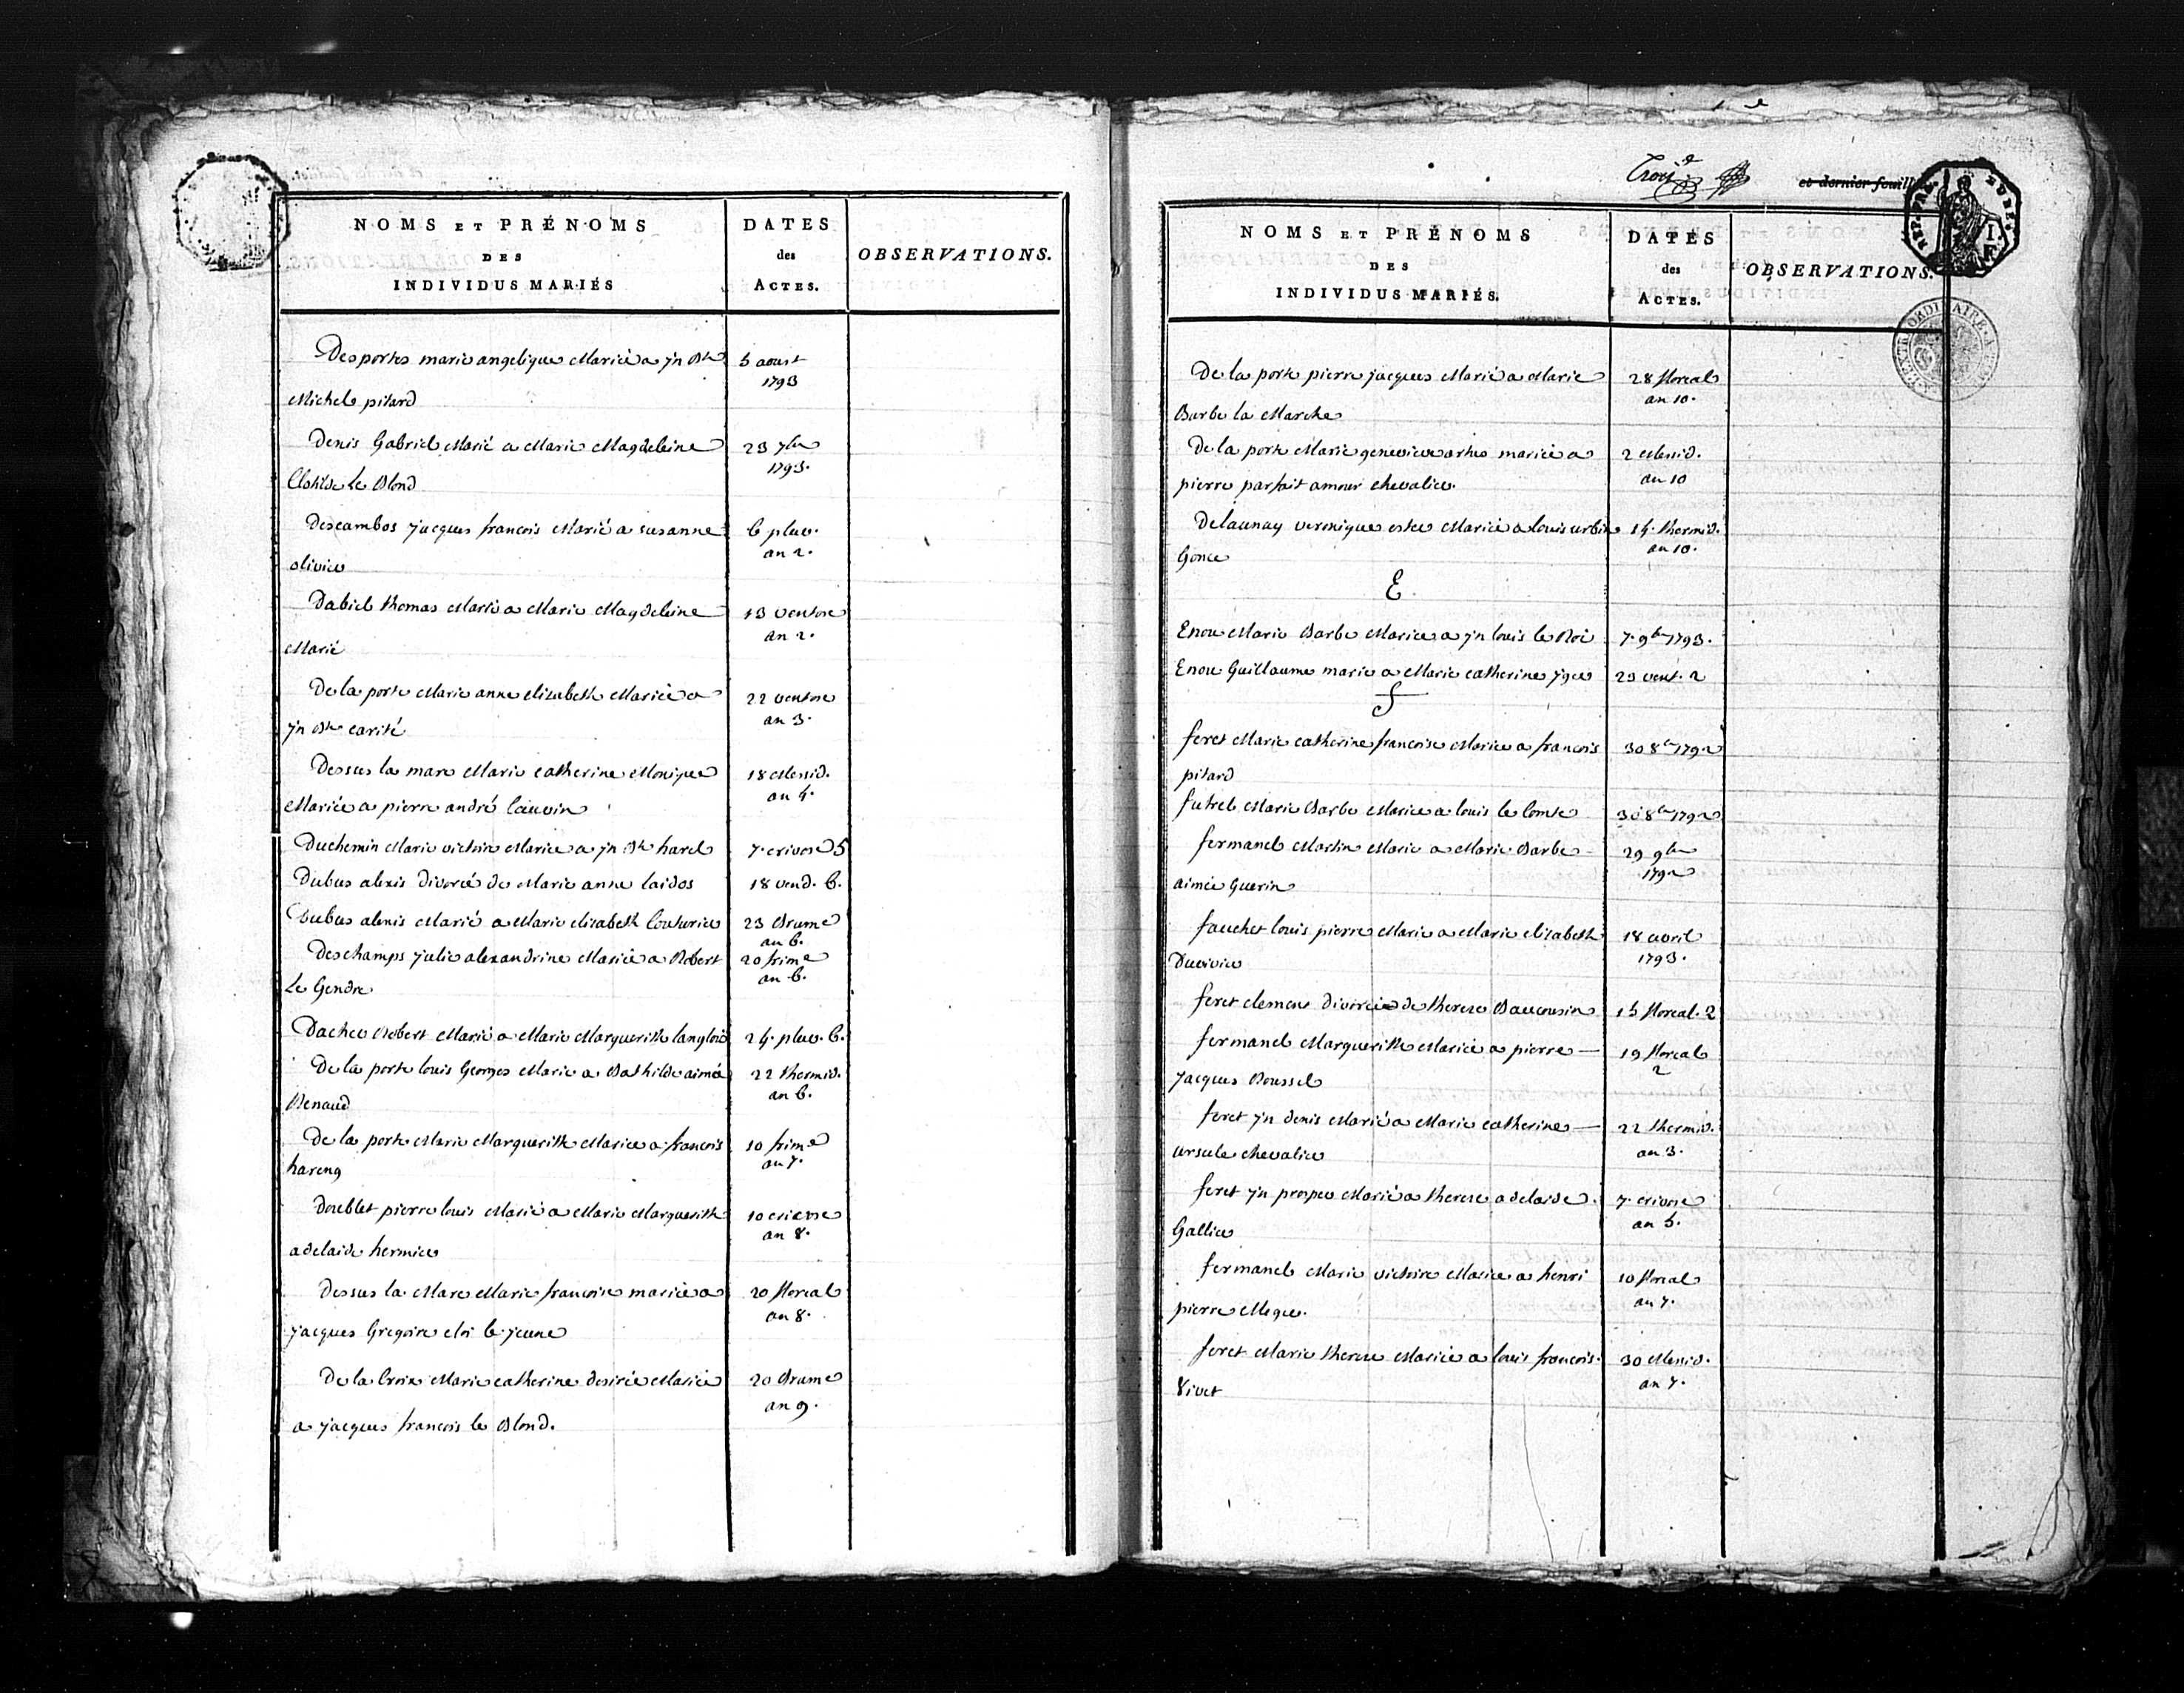 NOMS ET PRÉNOMS
DES
INDIVIDUS MARIÉS
DATES
des
ACTES.
OBSERVATIONS.
Desportes marie angelique Mariée a jn Bte 5 aoust
1793
Michel pitard
Denis Gabriel Marié a Marie Magdeleine 23 7bre
1793.
Clotilde Le Blond
Descambos jacques francois Marié a susanne 6 pluv.
an 2.
olivier
Dabiel thomas Marié a Marie Magdeleine 13 ventose
an 2.
Marié
De la porte Marie anne elizabeth Mariée a 22 ventose
an 3.
jn Bte carité
Dessus la mare Marie catherine Monique 18 Messid.
an 4.
Mariée a pierre andré Cauvin
Duchemin Marie victoire Mariée a jn Bte harel 7. nivose 5
Dubus alexis divorcé de Marie anne laidos 18 vend. 6.
Dubus alexis Marié a Marie elizabeth Couturier 23 Brume
an 6.
Deschamps julie alexandrine Mariée a Robert 20 frime
an 6.
Le Gendre
Dacher Robert Marié a Marie Marguerite langlois 24. pluv. 6.
De la porte louis Georges Marié a Bathilde aimée 22 thermid.
an 6.
Renaud
De la porte Marie Marguerite Mariée a francois 10 frime
an 7.
hareng
Doublet pierre louis Marié a Marie Marguerite 10 nivose
an 8.
adelaide hermier
Dessus la Mare Marie francoise mariée a 20 floreal
an 8.
jacques Gregoire eloi le jeune
De la Croix Marie catherine desirée Mariée 20 Brume
an 9.
a jacques francois le Blond.
Trois e
et dernier feuill
NOMS ET PRÉNOMS
DES
INDIVIDUS MARIÉS.
DATES
des
ACTES.
OBSERVATIONS.
De la porte pierre jacques Marié a Marie 28 floreal
an 10.
Barbe la Marche
De la porte Marie genevieve mariée a 2 Messid.
an 10
pierre parfait amour chevalier.
Delaunay veronique ester Mariée a louis urbin 14. thermid.
an 10.
Gonce
E.
Enou Marie Barbe Mariée a jn louis le Roi 7. 9bre 1793.
Enou Guillaume marié a Marie catherine 23 vent. 2
f
feret Marie catherine francoise Mariée a francois 30 8bre 1792
pitard
futrel Marie Barbe Mariée a louis le Comte 30 8bre 1792
fermanel Martin Marié a Marie Barbe 29 9bre
1792
aimée Guerin
fauchet louis pierre Marié a Marie elizabeth 18 avril
1793.
Duvivier
feret clemens divorcé de therese Baucousin 15 floreal. 2
fermanel Marguerite Mariée a pierre — 19 floreal
2
jacques Boussel
feret jn denis Marié a Marie catherine — 22 thermid.
an 3.
ursule chevalier
feret jn prosper Marié a therese adelaide. 7. nivose
an 5.
Gallier
fermanel Marie victoire Mariée a henri 10 floreal
an 7.
pierre Megue.
feret Marie therese Mariée a louis francois. 30 Messid.
an 7.
Vivet